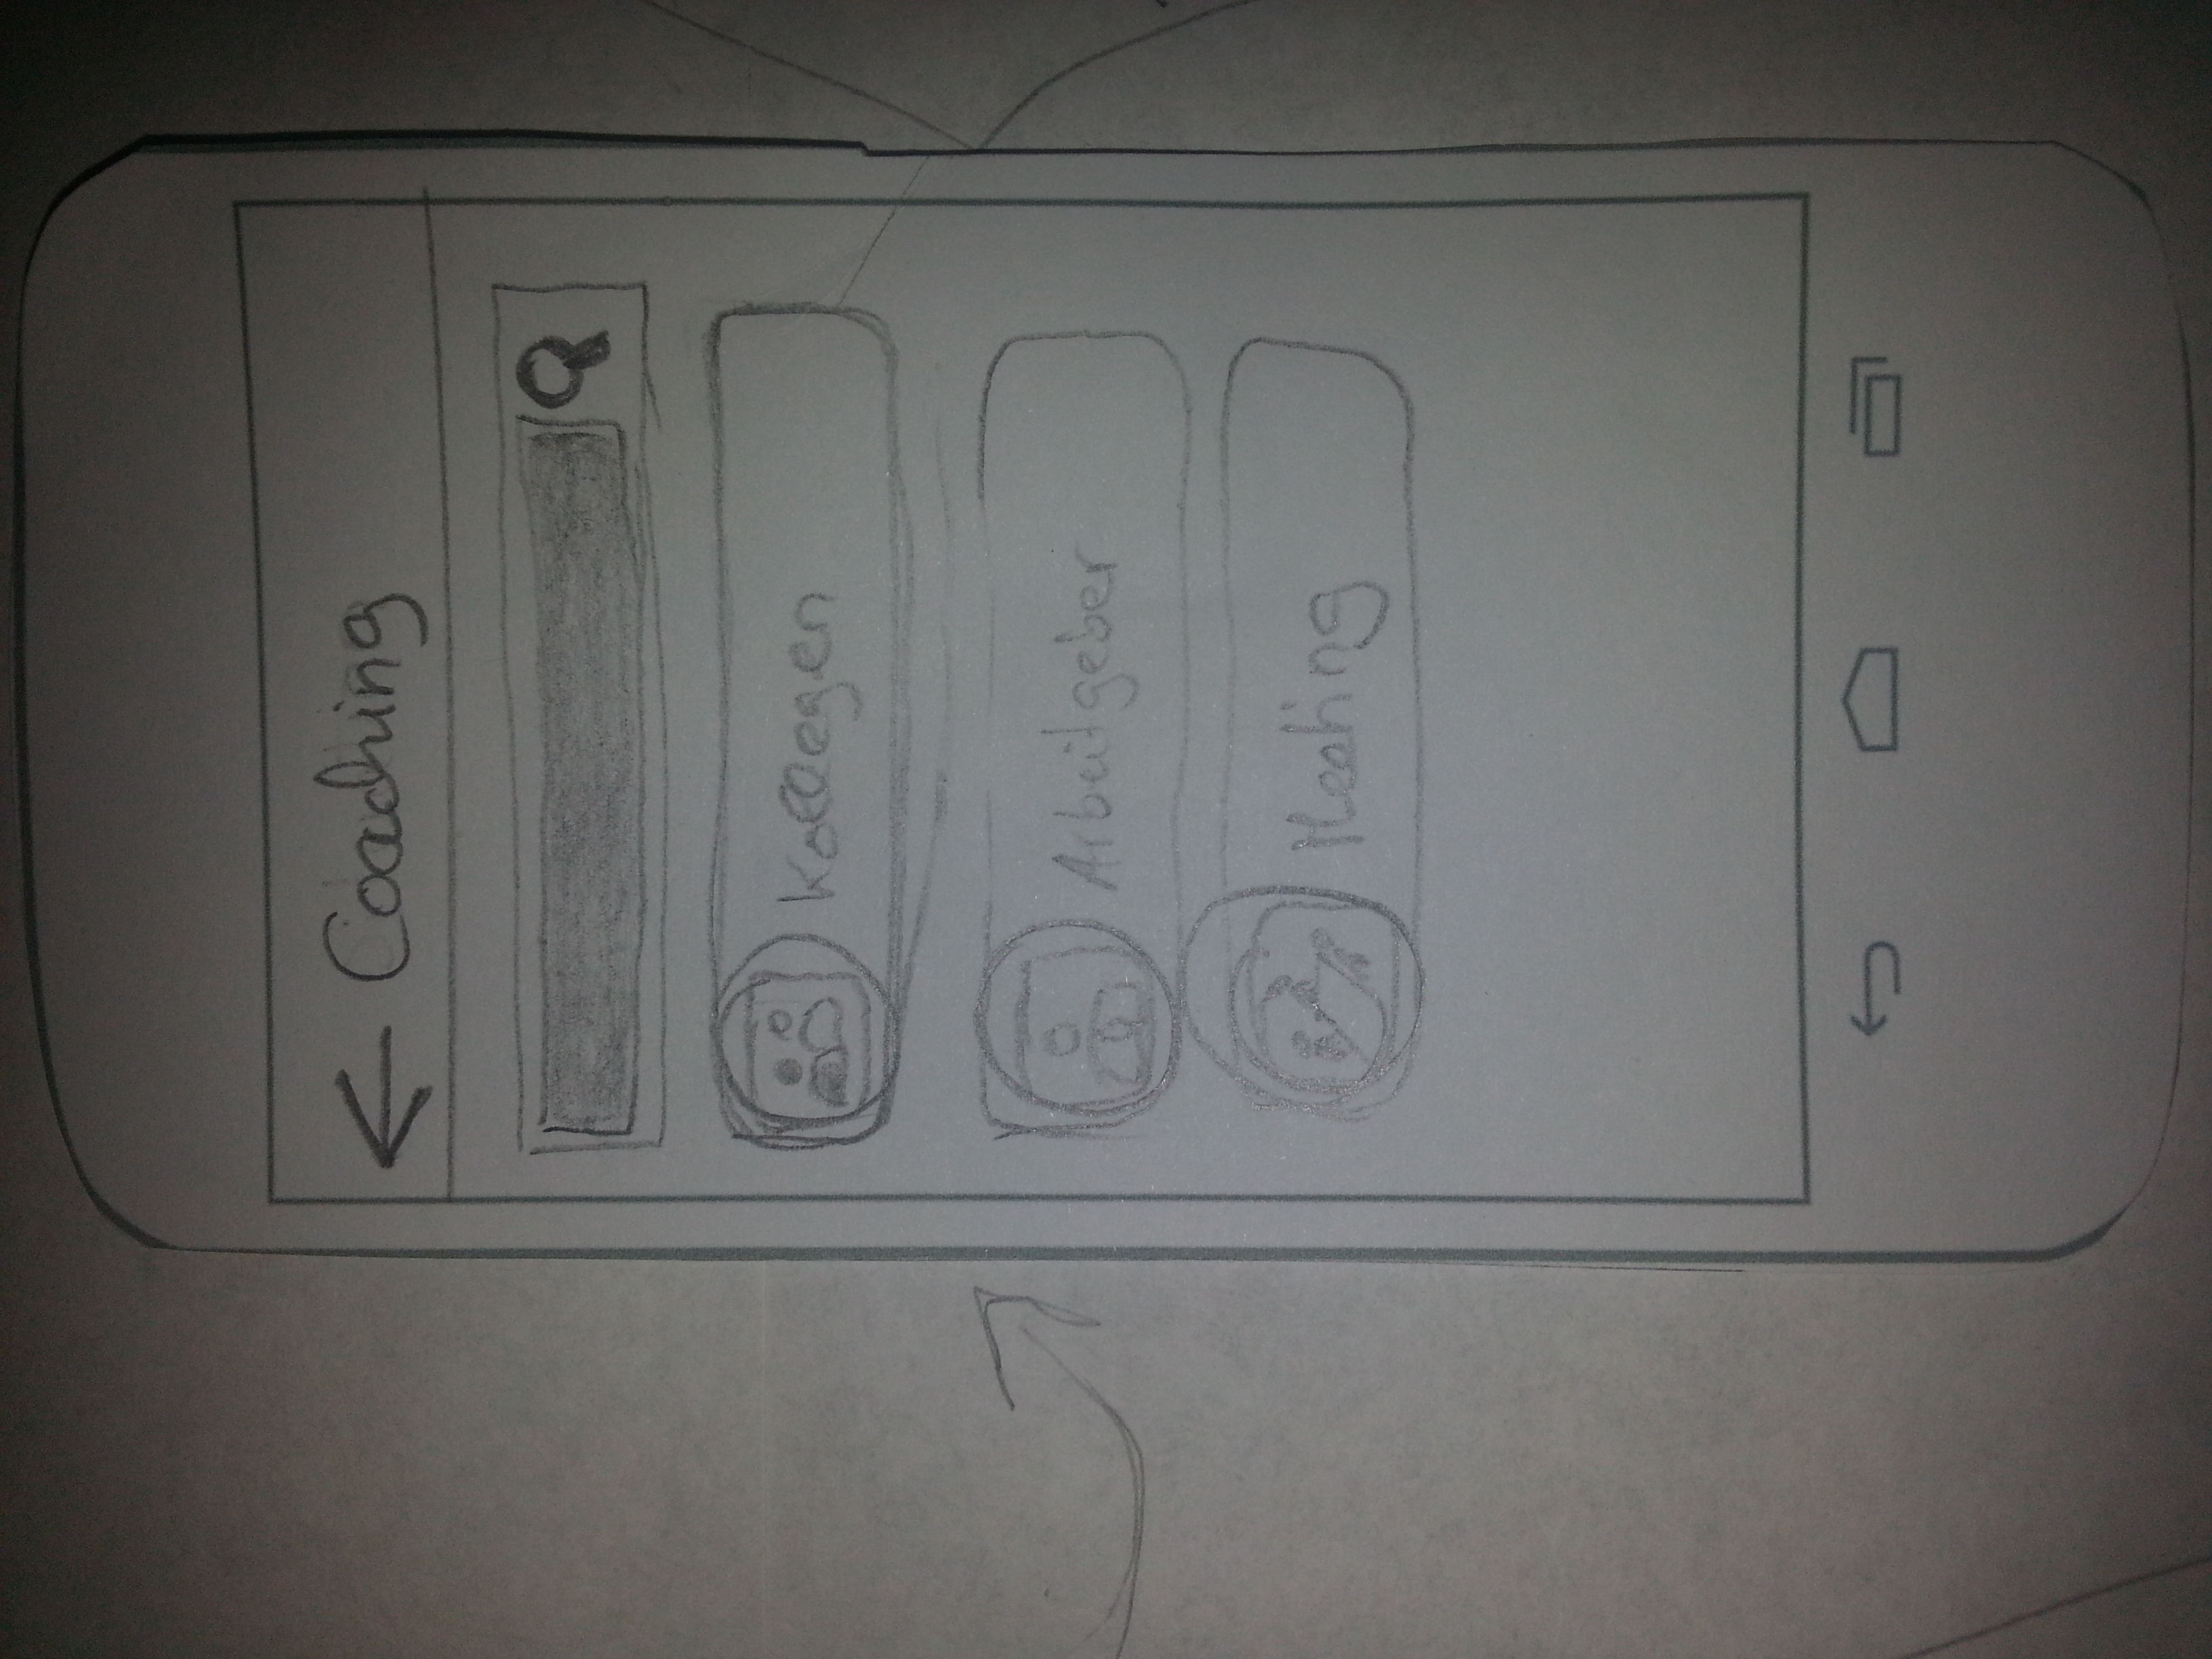 Coaching
Kollegen
Arbeitgeber
Healing